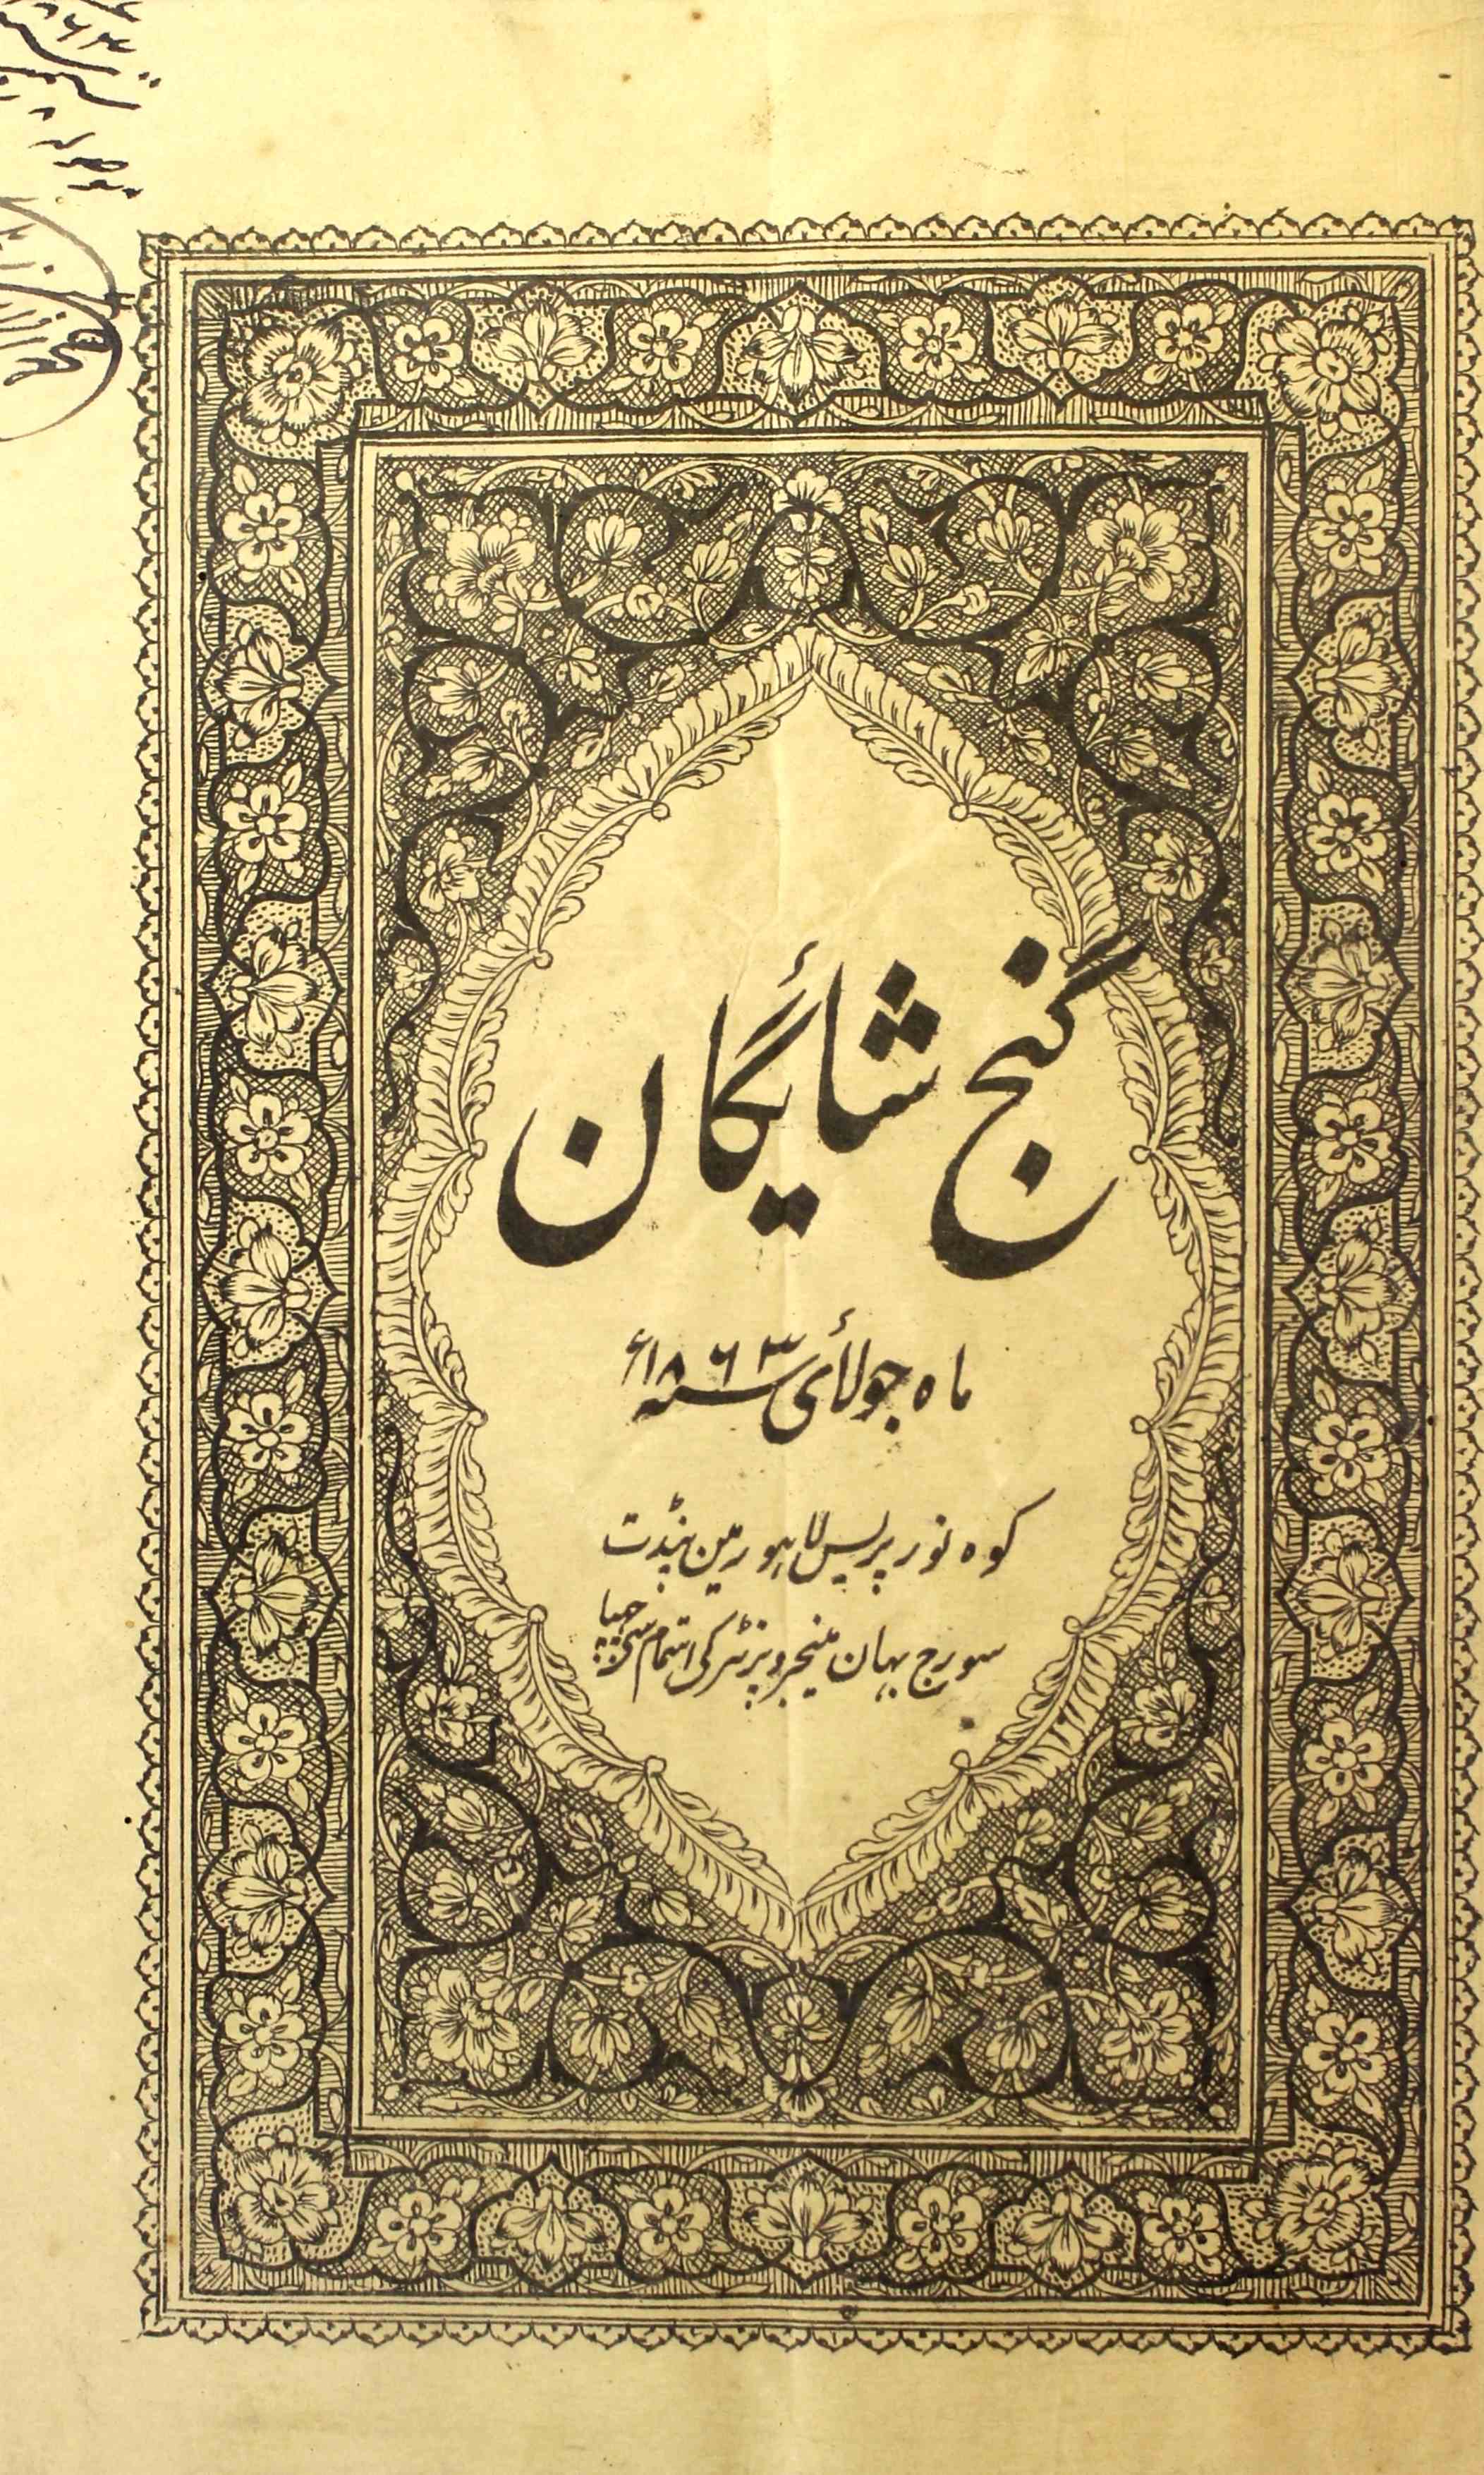 گنج شائیگان
ماہ جولائی سنہ ۱۸۶۳ء
کوہ نور پریس لاہور مین پنڈت
سورج بہان منیجر و پرنٹر کی اہتمام سی چہپا